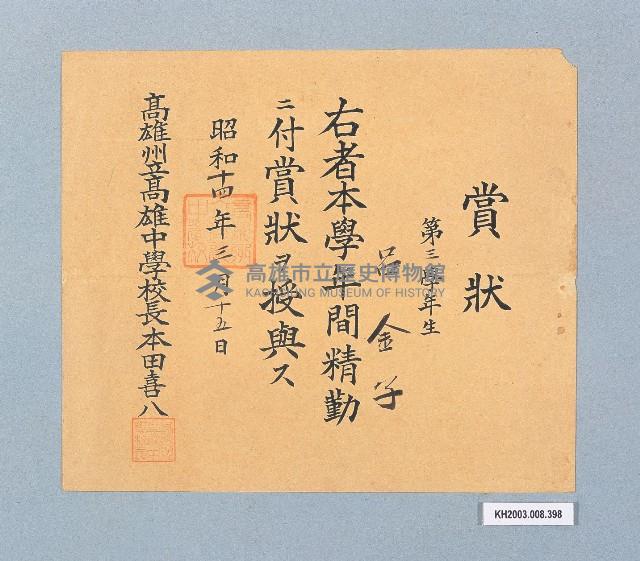 賞狀
第三學年生
呂金
右者本學年間精勤
ニ付賞狀ヲ授與ス
昭和十四年三月十五日
高雄州立高雄中學校長本田喜八
高雄市立歷史博物館
KAOHSIUNG MUSEUM OF HISTORY
KH2003.008.398